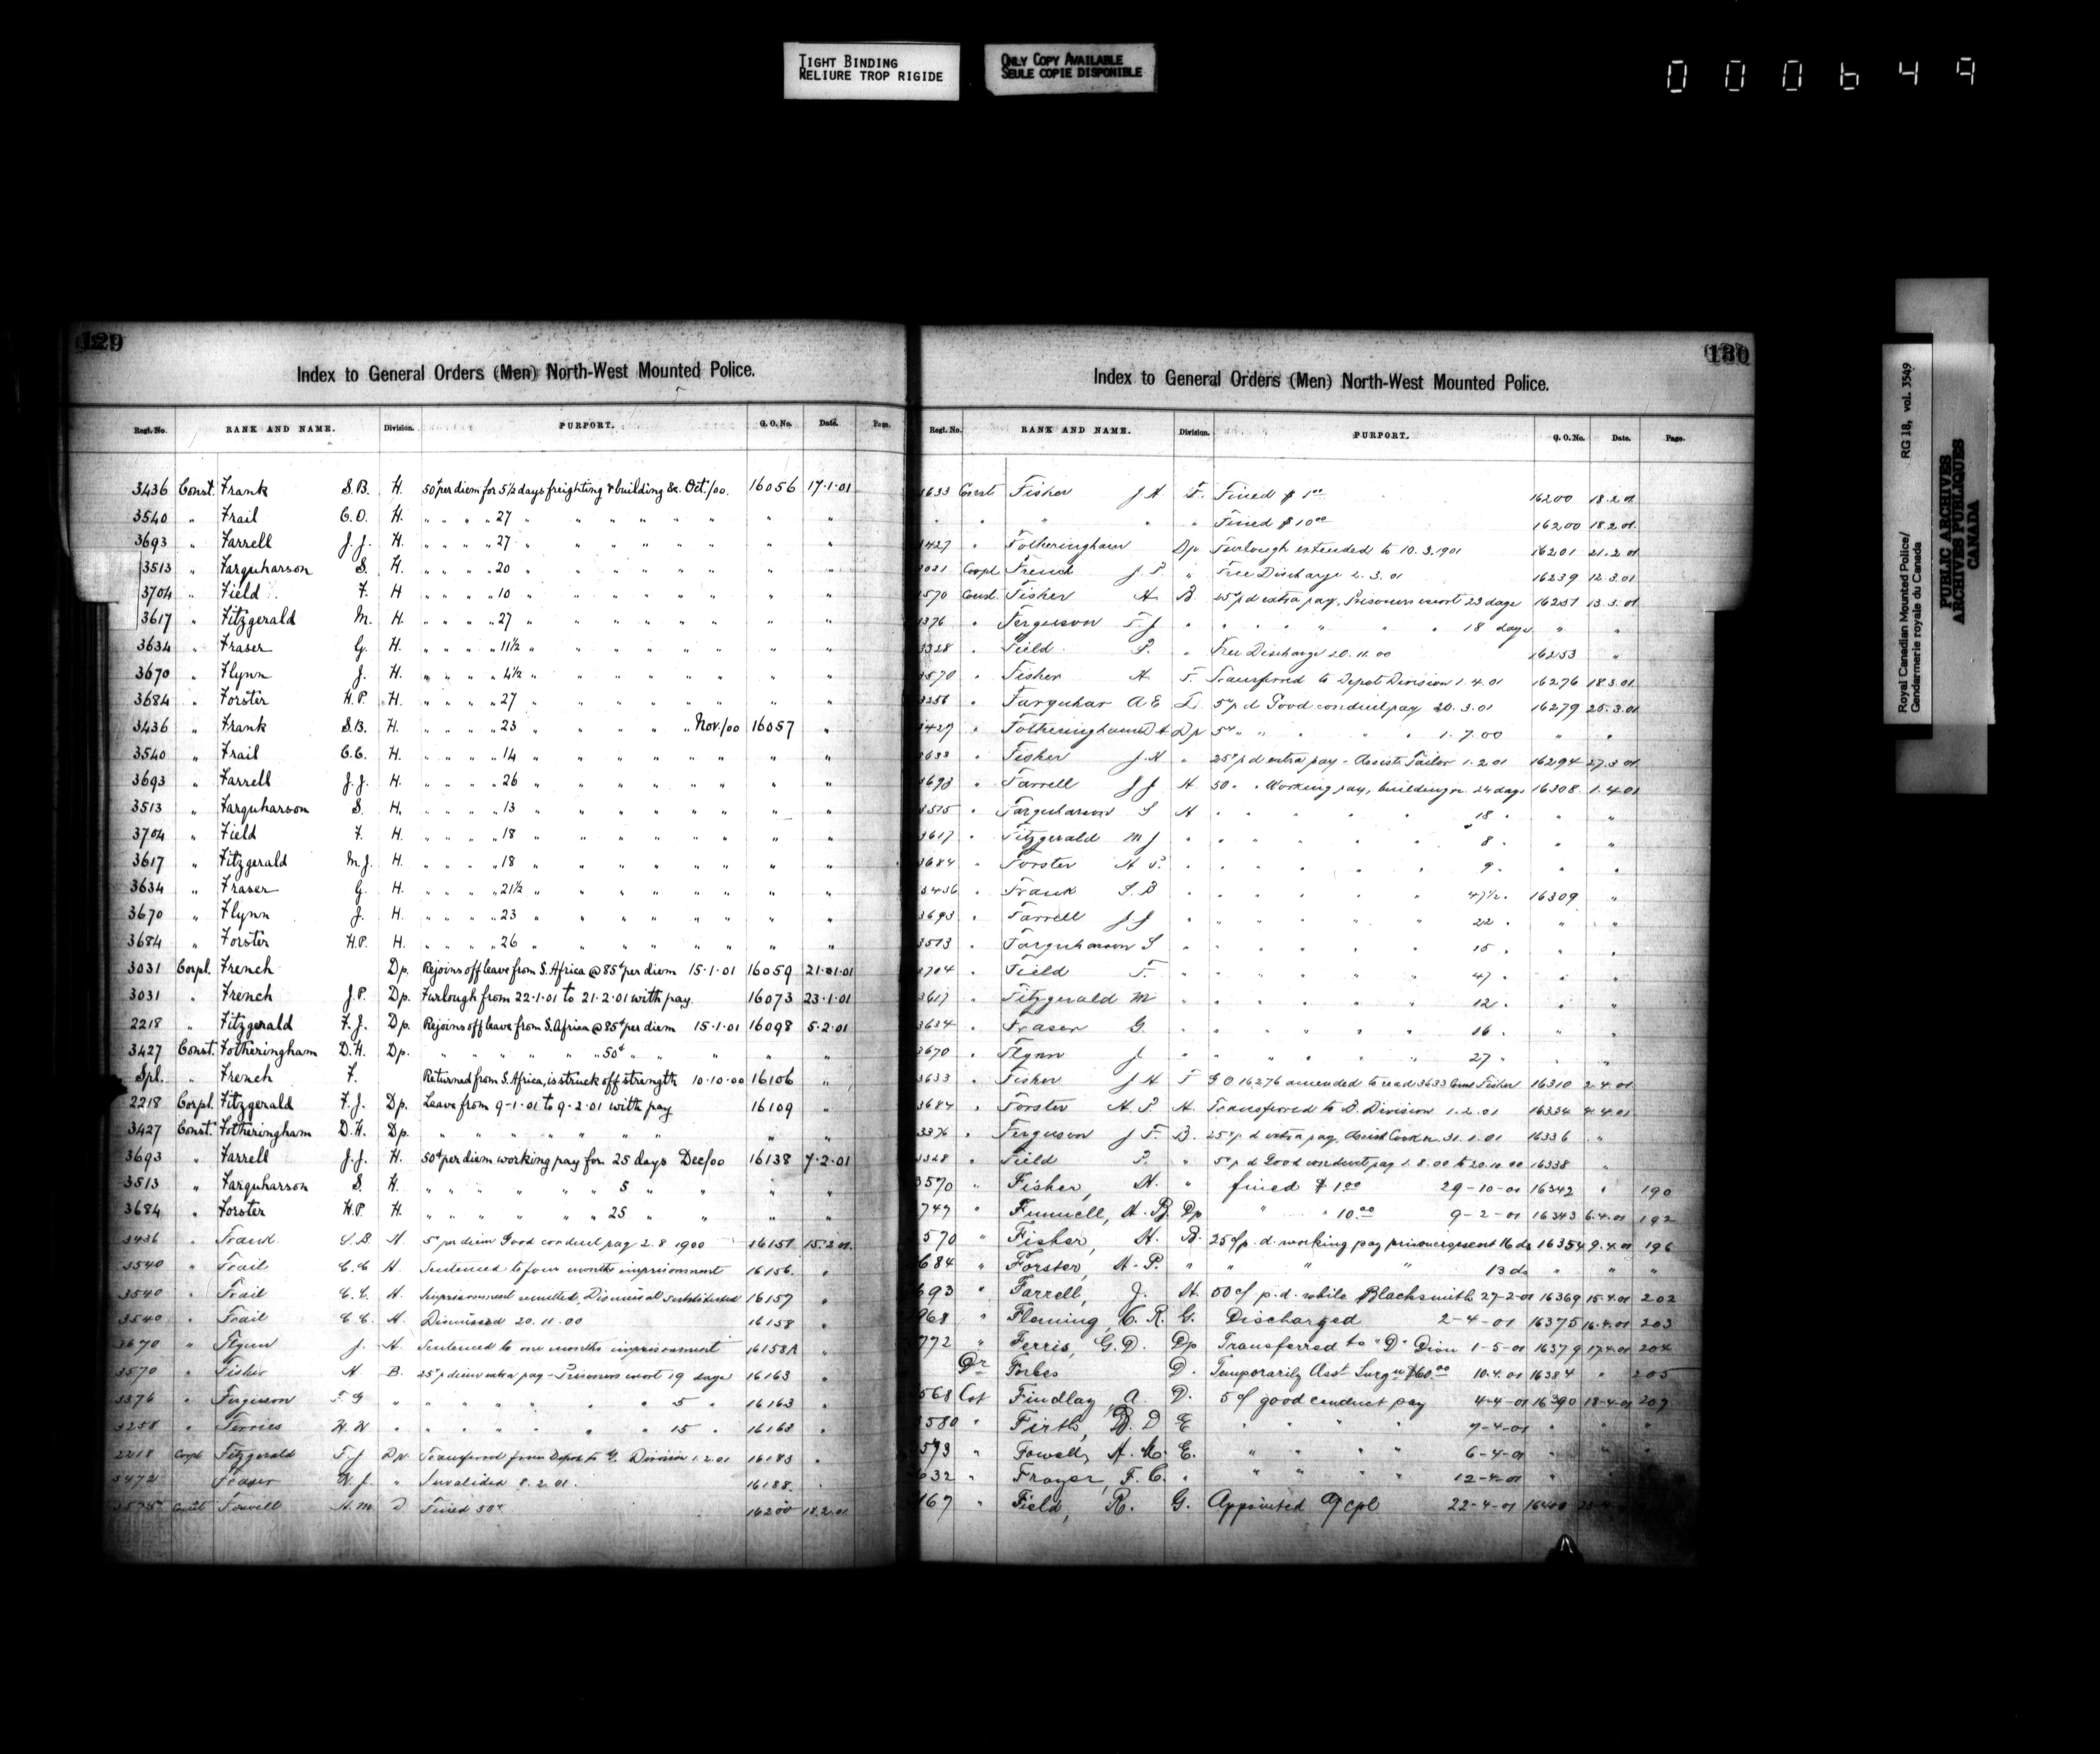 TIGHT BINDING
RELIURE TROP RIGIDE
ONLY COPY AVAILABLE
SEULE COPIE DISPONIBLE
000649
129
Index to General Orders (Men) North-West Mounted Police.
Regl. No. RANK AND NAME. Division. PURPORT. G. O. No. Date. Page.
3436 Const. Frank S.B. H. 50¢ per diem for 5½ days freighting & building &c. Oct./00. 16056 17·1·01
3540 " Frail C.O. H. " " " " 27 " " " " " " " "
3693 " Farrell J.J. H. " " " " 27 " " " " " " " "
3513 " Farquharson S. H. " " " " 20 " " " " " " " "
3704 " Field F. H " " " " 10 " " " " " " " "
3617 " Fitzgerald M. H. " " " " 27 " " " " " " " "
3634 " Fraser G. H. " " " " 11½ " " " " " " " "
3670 " Flynn J. H. " " " " 4½ " " " " " " " "
3684 " Forster H.P. H. " " " " 27 " " " " " " " "
3436 " Frank S.B. H. " " " " 23 " " " " " Nov./00 16057 "
3540 " Frail C.C. H. " " " " 14 " " " " " " " "
3693 " Farrell J.J. H. " " " " 26 " " " " " " " "
3513 " Farquharson S. H. " " " " 13 " " " " " " " "
3704 " Field F. H. " " " " 18 " " " " " " " "
3617 " Fitzgerald M.J. H. " " " " 18 " " " " " " " "
3634 " Fraser G. H. " " " " 21½ " " " " " " " "
3670 " Flynn J. H. " " " " 23 " " " " " " " "
3684 " Forster H.P. H. " " " " 26 " " " " " " " "
3031 Corpl. French Dp. Rejoins off leave from S. Africa @ 85¢ per diem 15·1·01 16059 21·01·01
3031 " French J.P. Dp. Furlough from 22·1·01 to 21·2·01 with pay. 16073 23·1·01
2218 " Fitzgerald F.J. Dp. Rejoins off leave from S. Africa @ 85¢ per diem 15·1·01 16098 5·2·01
3427 Const. Fotheringham D.H. Dp. " " " " " " 50¢ " " " " "
Spl. " French F. Returned from S. Africa, is struck off strength 10·10·00 16106 "
2218 Corpl. Fitzgerald F.J. Dp. Leave from 9-1-01 to 9-2-01 with pay 16109 "
3427 Const. Fotheringham D.H. Dp. " " " " " " " " "
3693 " Farrell J.J. H. 50¢ per diem working pay for 25 days Dec/00 16138 7·2·01
3513 " Farquharson S. H. " " " " " 5 " " " "
3684 " Forster H.P. H. " " " " " 25 " " " "
3436 " Frank S.B H. 5¢ per diem Good conduct pay 2.8.1900 16151 15.2.01.
3540 " Frail C.C H. Sentenced to four months imprisonment 16156. "
3540 " Frail C.C. H. Imprisonment remitted, Dismissal substituted 16157 "
3540 " Frail C.C. H. Dismissed 20.11.00 16158 "
3670 " Flynn J. H. Sentenced to one months imprisonment 16158A "
3570 " Fisher H B. 25¢ p diem extra pay - Prisoners escort 19 days 16163 "
3376 " Ferguson " " " " " " 5 " 16163 "
3258 " Ferries H.N " " " " " " 15 " 16163 "
2218 Corpl Fitzgerald F.J Dp. Transferred from Depot to G. Division 1.2.01 16183 "
3472 Fraser J. " Invalided 8.2.01. 16188.
3575 Const Fowell H.M. D Fined 50¢ 16200 18.2.01.
130
Index to General Orders (Men) North-West Mounted Police.
Regl. No. RANK AND NAME. Division. PURPORT. G. O. No. Date. Page.
3633 Const Fisher J H F. Fined $1 00 16200 18.2.01
" " " " " Fined $10 00 16200 18.2.01.
3427 " Fotheringham Dp Furlough extended to 10.3.1901 16201 21.2.01
3031 Corpl French J.P. " Free Discharge 2.3.01 16239 12.3.01
3570 Const. Fisher H B. 25¢ p d extra pay, Prisoners escort 23 days 16251 13.3.01.
3376 " Ferguson F.J " " " " " " " 18 days " "
3328 " Field P. " Free Discharge 20.11.00 16253 "
3570 " Fisher H F. Transferred to Depot Division 1.4.01 16276 18.3.01.
3256 " Farquhar A E D 5¢ p d Good conduct pay 20.3.01 16279 20.3.01.
3427 " Fotheringham D H Dp 5¢ " " " " 1.7.00 " "
3633 " Fisher J.H " 25¢ p d extra pay - Assist. Tailor 1.2.01 16294 27.3.01.
3693 " Farrell J J H 50 " " Working pay, building &c. 24 days 16308 1.4.01
3515 " Farquharson S H " " " " " 18 " " "
3617 " Fitzgerald M J " " " " " " 8 " " "
3684 " Forster H P. " " " " " " 9 " " "
3436 " Frank S.B " " " " " " 47½ " 16309 "
3693 " Farrell J J " " " " " " 22 " " "
3513 " Farquharson S " " " " " " 15 " " "
3704 " Field F. " " " " " " 47 " " "
3617 " Fitzgerald M " " " " " " 12 " " "
3634 " Fraser G. " " " " " " 16 " " "
3670 " Flynn J. " " " " " " 27 " " "
3633 " Fisher J H F G.O. 16276 amended to read 3633 Const Fisher 16310 2.4.01
3684 " Forster H.P. H. Transferred to B. Division 1.2.01 16334 4.4.01
3376 " Ferguson J F. B. 25¢ p d extra pay, Assist Cook 31.1.01 16336 "
3328 " Field P. " 5¢ p d Good conduct pay 1.8.00 to 20.11.00 16338 "
3570 " Fisher, H. " fined $1 00 29-10-01 16342 " 190
749 " Funnell, H.B. Dp " " 10.00 9-2-01 16343 6.4.01 192
570 " Fisher, H. B. 25¢ p.d. working pay prisoners escort 16 ds 16354 9.4.01 196
684 " Forster, H.P. " " " " 13 ds " " "
693 " Farrell, J. H. 50¢ p.d. while Blacksmith 27-2-01 16369 15.4.01 202
968 " Fleming, C.R. G. Discharged 2-4-01 16375 16.4.01 203
772 " Ferris, G.D. Dp Transferred to "D" Divn 1-5-01 16379 17.4.01 204
Dr Forbes D. Temporarily Asst Surgn $60.00 10.4.01 16384 " 205
568 Cst Findlay, A D. 5¢ good conduct pay 4-4-01 16390 18-4-01 207
580 " Firth, B.D E " " " " 7-4-01 " " "
573 " Fowell, H.M. E. " " " " 6-4-01 " " "
632 " Frayer, F.C. " " " " " 12-4-01 " "
167 " Field, R. G. Appointed A/Cpl 22-4-01 16400
Royal Canadian Mounted Police/ RG 18, vol. 3549
Gendarmerie royale du Canada
PUBLIC ARCHIVES
ARCHIVES PUBLIQUES
CANADA